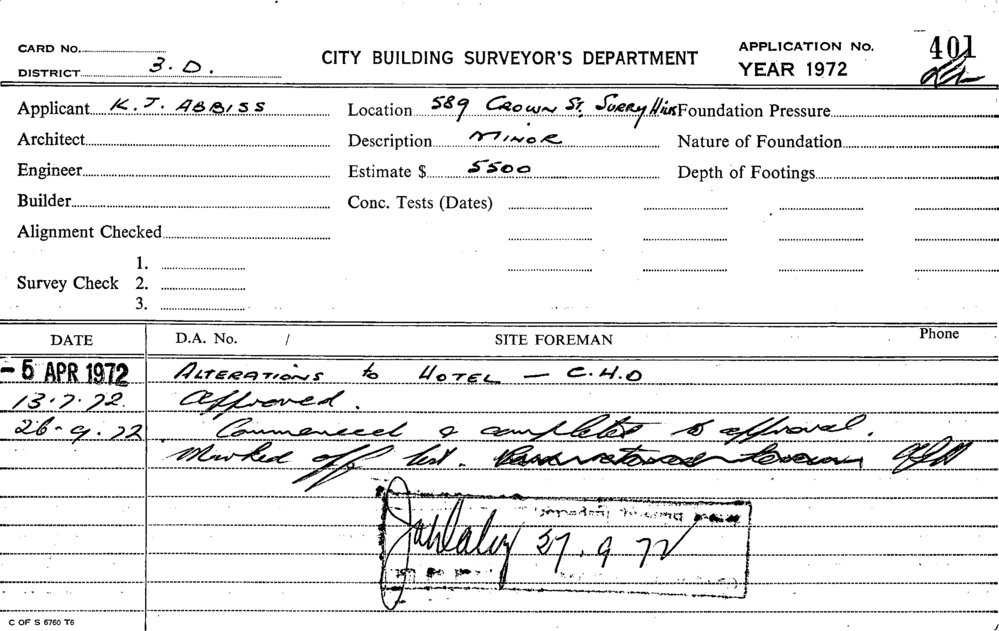 CARD No.
DISTRICT 3.D.
CITY BUILDING SURVEYOR'S DEPARTMENT
APPLICATION No. 401
YEAR 1972
Applicant K.J. ABBISS
Location 589 CROWN ST. SURRY HILLS
Foundation Pressure
Architect
Description MINOR
Nature of Foundation
Engineer
Estimate $ 5500
Depth of Footings
Builder
Conc. Tests (Dates)
Alignment Checked
Survey Check 1.
2.
3.
DATE D.A. No. / SITE FOREMAN Phone
- 5 APR 1972 ALTERATIONS to HOTEL — C.H.O
13.7.72. Approved.
26-9.72 Commenced & completed to approval.
Marked off list.
27.9.72
C OF S 6760 T6